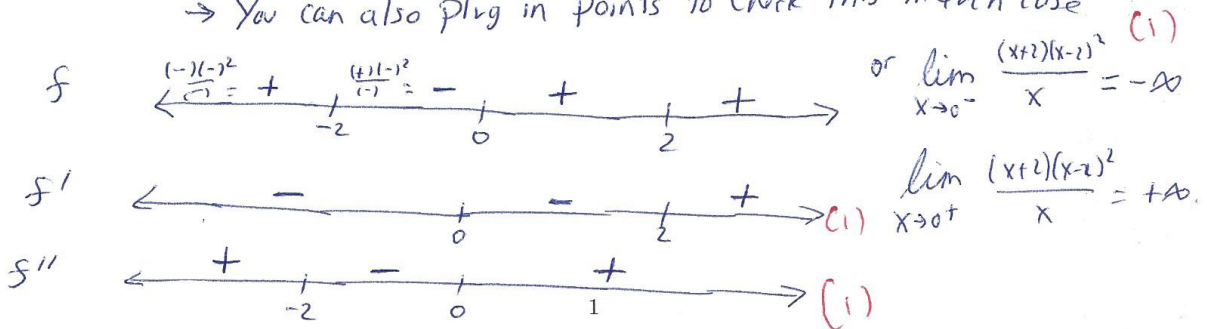 → You can also plug in points to check this in each case
(1)
f (-)(-)²/(-) = + (+)(-)²/(-) = - + +
-2 0 2
or lim x→0⁻ (x+2)(x-2)²/x = -∞
f' - - +
0 2 (1)
lim x→0⁺ (x+2)(x-2)²/x = +∞.
f'' + - +
-2 0 1 (1)